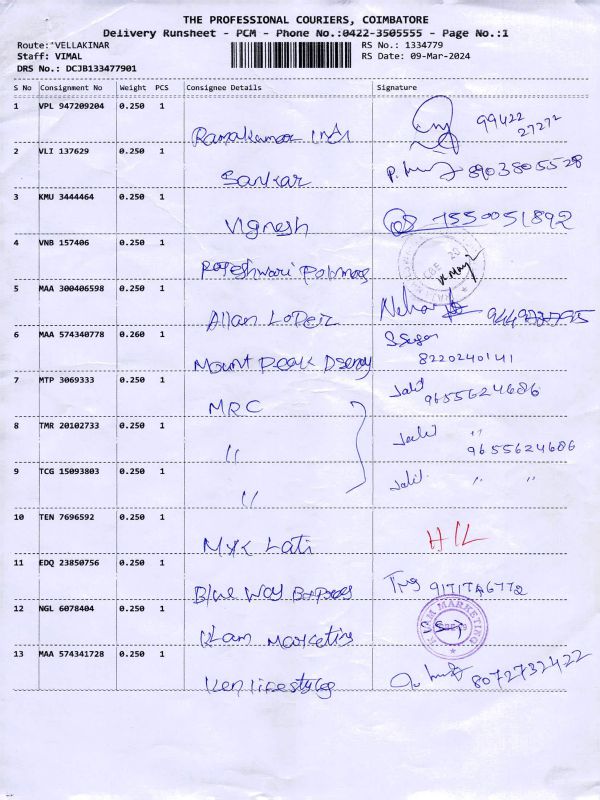 THE PROFESSIONAL COURIERS, COIMBATORE
Delivery Runsheet - PCM - Phone No.:0422-3505555 - Page No.:1
Route: VELLAKINAR RS No.: 1334779
Staff: VIMAL RS Date: 09-Mar-2024
DRS No.: DCJB133477901
S No Consignment No Weight PCS Consignee Details Signature
1 VPL 947209204 0.250 1
99422
27272
2 VLI 137629 0.250 1
Sankar 8903805528
3 KMU 3444464 0.250 1
Vignesh 7550051892
4 VNB 157406 0.250 1
Rajeshwari
5 MAA 300406598 0.250 1
Allan
6 MAA 574340778 0.260 1
Mount Peak 8220240141
7 MTP 3069333 0.250 1
MRC Jalil 9655624686
8 TMR 20102733 0.250 1
" Jalil "
9655624686
9 TCG 15093803 0.250 1
" Jalil " "
10 TEN 7696592 0.250 1
Lati
11 EDQ 23850756 0.250 1
Blue Way
12 NGL 6078404 0.250 1
Marketing
MARKETING
13 MAA 574341728 0.250 1
Ken lifestyle 8072732422